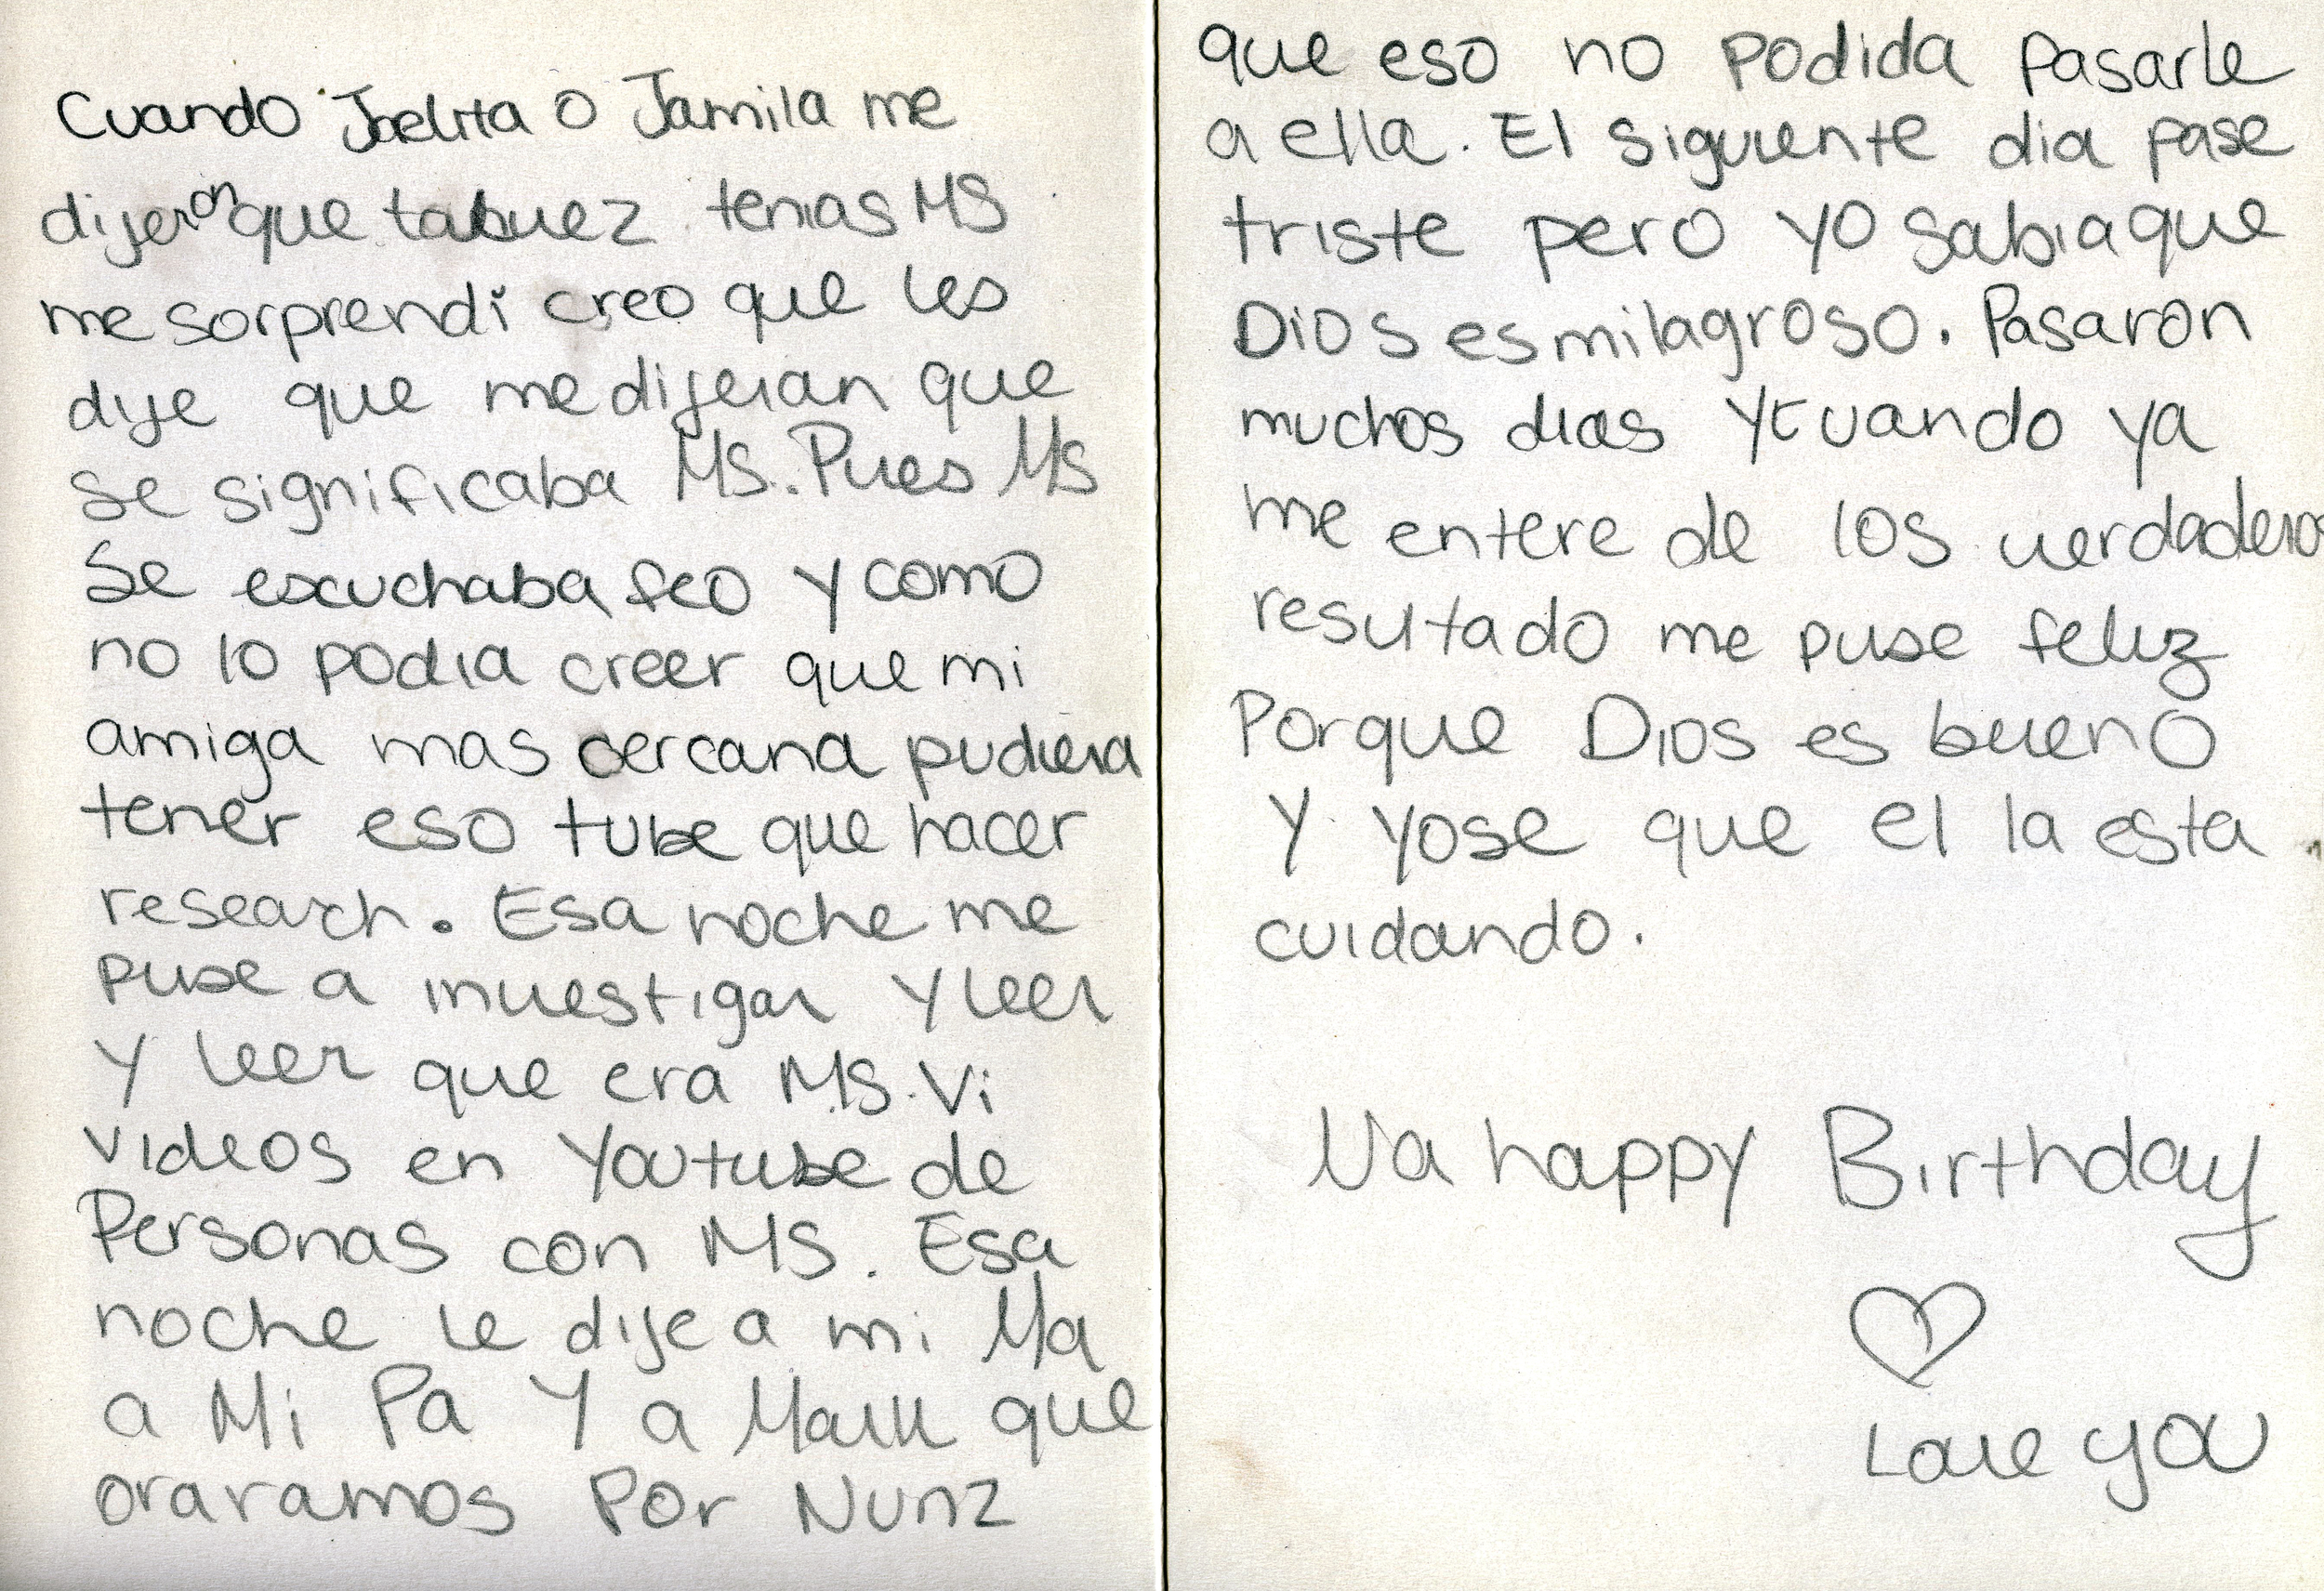 Cuando Joelita o Jamila me
dijeron que tabuez tenias MS
me sorprendí creo que les
dije que me dijeran que
se significaba MS. Pues MS
se escuchaba feo y como
no lo podia creer que mi
amiga mas cercana pudiera
tener eso tube que hacer
research. Esa noche me
puse a investigar y leer
y leer que era MS. Vi
videos en Youtube de
Personas con MS. Esa
noche le dije a mi Ma
a Mi Pa Y a Mark que
oraramos Por Nunz
que eso no podida pasarle
a ella. El siguiente dia pase
triste pero yo sabia que
Dios es milagroso. Pasaron
muchos dias y cuando ya
me entere de los verdaderos
resultado me puse feliz
Porque Dios es bueno
Y yo se que el la esta
cuidando.
Na happy Birthday
Love you